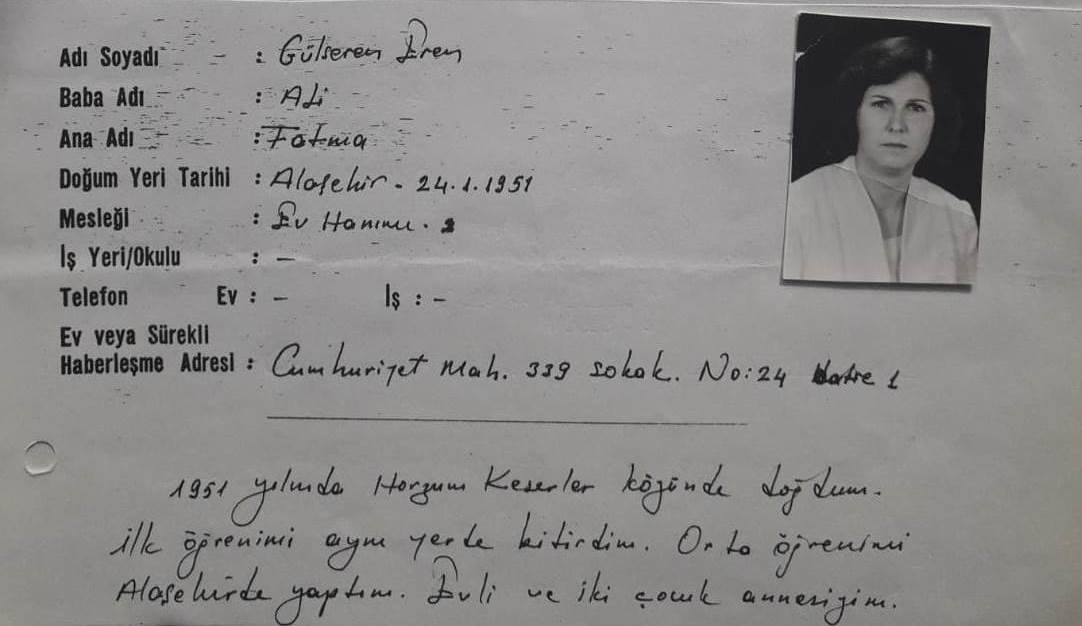 Adı Soyadı : Gülseren Eren
Baba Adı : Ali
Ana Adı : Fatma
Doğum Yeri Tarihi : Alaşehir - 24.1.1951
Mesleği : Ev Hanımı.
İş Yeri/Okulu : -
Telefon Ev : - İş : -
Ev veya Sürekli
Haberleşme Adresi : Cumhuriyet Mah. 339 sokak. No:24 Daire 1
1951 yılında Horzum Keserler köyünde doğdum.
ilk öğrenimi aynı yerde bitirdim. Orta öğrenimi
Alaşehirde yaptım. Evli ve iki çocuk annesiyim.